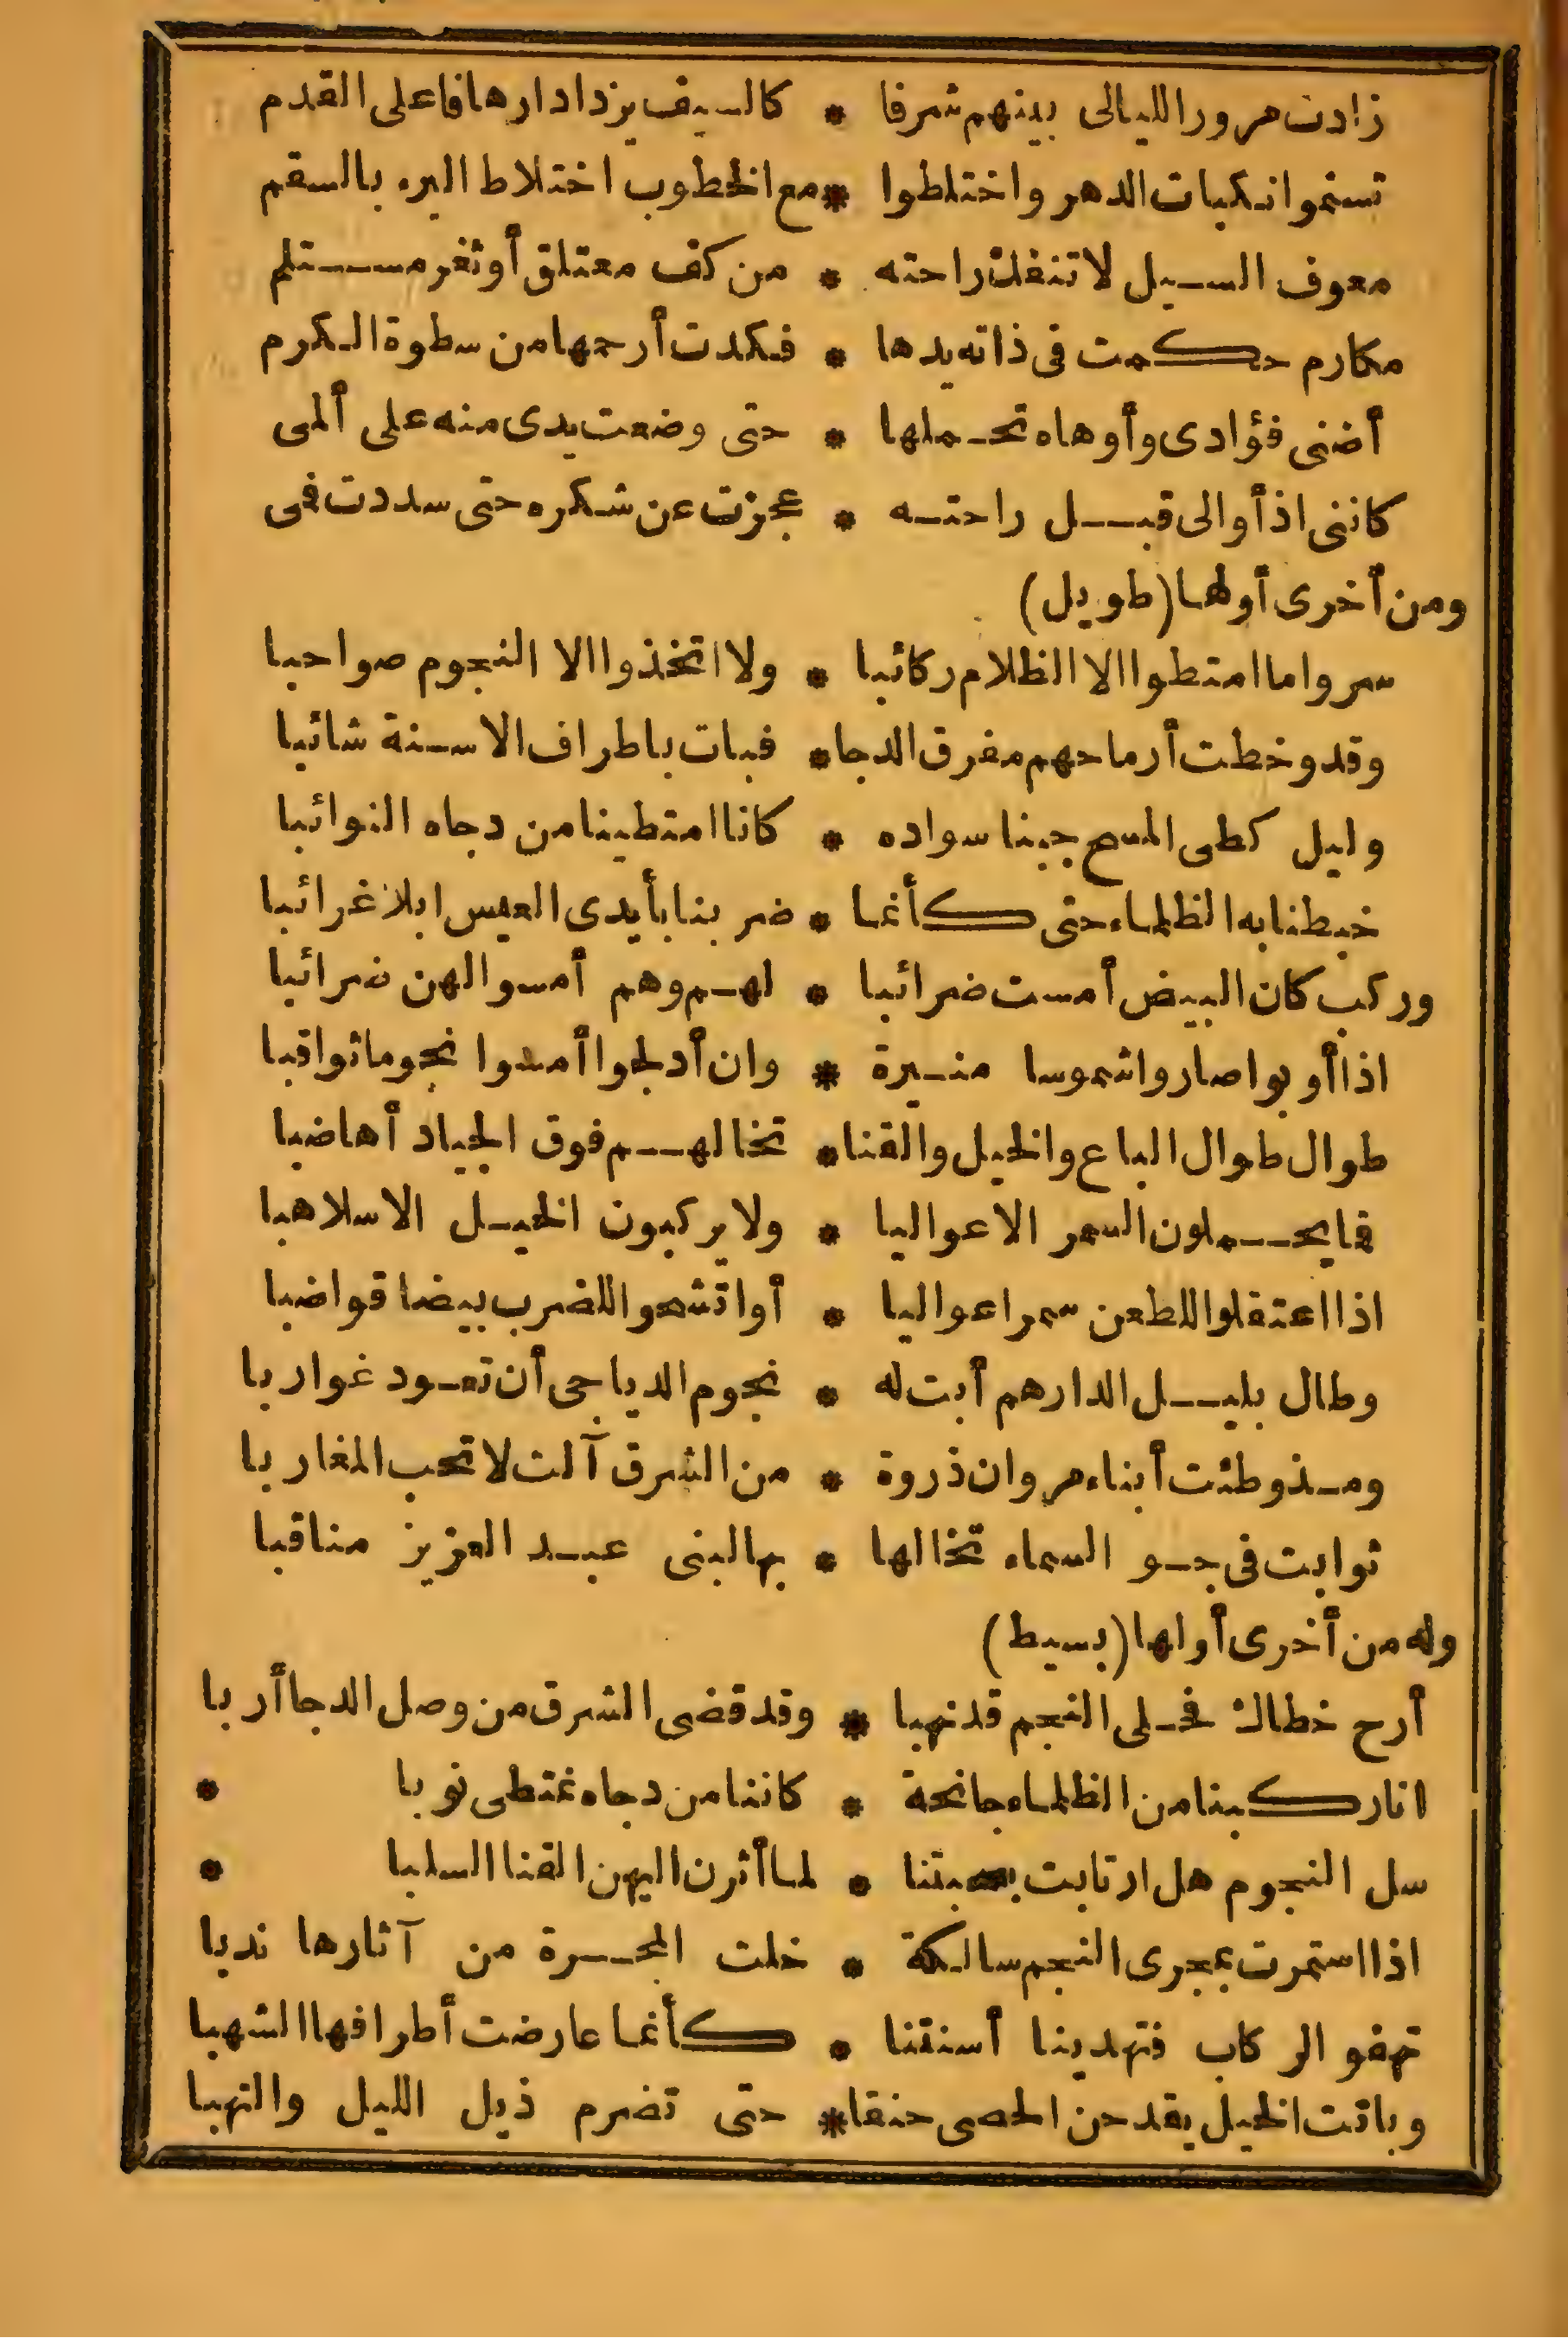 زادت مرور الليالى بينهم شرفا * كالسيف يزداد ارهافا على القدم
تسنموا نكبات الدهر واختلطوا * مع الخطوب اختلاط البرء بالسقم
معوف السبيل لا تنفك راحته * من كف معتلق أو ثغر مستلم
مكارم حكمت فى ذاته يدها * فكدت أرحمها من سطوة الكرم
أضنى فؤادى وأوهاه تحملها * حتى وضعت يدى منه على ألمى
كاننى اذ أوالى قبل راحته * عجزت عن شكره حتى سددت فمى
ومن أخرى أولها (طويل)
سروا ما امتطوا الا الظلام ركائبا * ولا اتخذوا الا النجوم صواحبا
وقد وخطت أرماحهم مفرق الدجا * فبات باطراف الاسنة شائبا
وليل كطى المسح جبنا سواده * كانا امتطينا من دجاه النوائبا
خبطنا به الظلماء حتى كأنما * ضربنا بأيدى العيس ابلا غرائبا
وركب كان البيض أمست ضرائبا * لهم وهم أمسوا لهن ضرائبا
اذا أوبوا صاروا شموسا منيرة * وان أدلجوا أمسوا نجوما ثواقبا
طوال طوال الباع والخيل والقنا * تخالهم فوق الجياد أهاضبا
فما يحملون السمر الا عواليا * ولا يركبون الخيل الا سلاهبا
اذا اعتقلوا للطعن سمرا عواليا * أو اتشحوا للضرب بيضا قواضبا
وطال بليل الدارهم أبت له * نجوم الدياجى أن تعود غواربا
ومذ وطئت أبناء مروان ذروة * من الشرق آلت لا تحب المغاربا
ثوابت فى جو السماء تخالها * بها لبنى عبد العزيز مناقبا
وله من أخرى أولها (بسيط)
أرح خطاك فحلى النجم قد نهبا * وقد قضى الشرق من وصل الدجا أربا
انا ركبنا من الظلماء جانحة * كاننا من دجاه نمتطى نوبا *
سل النجوم هل ارتابت بصحبتنا * لما أثرن اليهن القنا السلبا *
اذا استمرت بمجرى النجم سالكة * خلت المجرة من آثارها ندبا
تهفو الركاب فتهدينا أسنتنا * كأنما عارضت أطرافها الشهبا
وباتت الخيل يقدحن الحصى حنقا * حتى تضرم ذيل الليل والتهبا